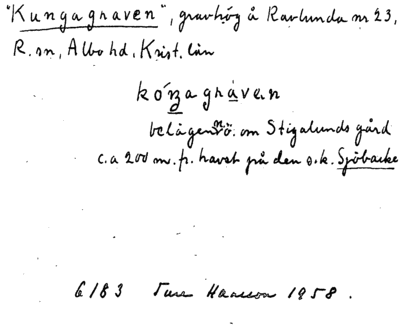 "Kungagraven", gravhög å Ravlunda nr 23,
R. sn, Albo hd, Krist. län
kóŋagràvɐn
belägen nö. om Stigalunds gård
c.a 200 m. fr. havet på den s.k. Sjöbacke
6183 Ture 1958.